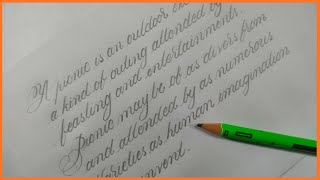 A picnic is an outdoor
a kind of outing attended by
feasting and entertainments.
Picnic may be of as divers from
and attended by as numerous
varieties as human imagination
invent.